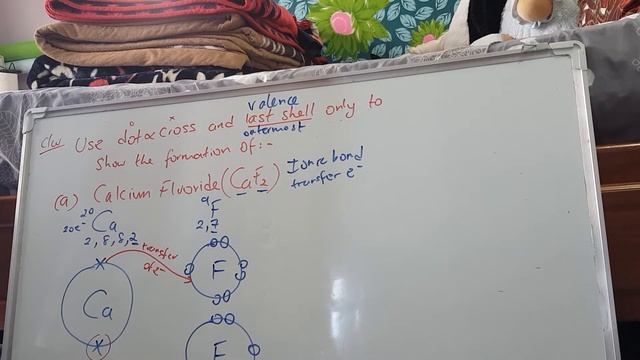 valence
C/w Use dot & cross and last shell only to
outermost
show the formation of:-
(a) Calcium Fluoride (CaF2) Ionic bond
transfer e-
20 Ca
20e-
2, 8, 8, 2
9 F
2, 7
transfer
of e-
x
Ca
x
F
F